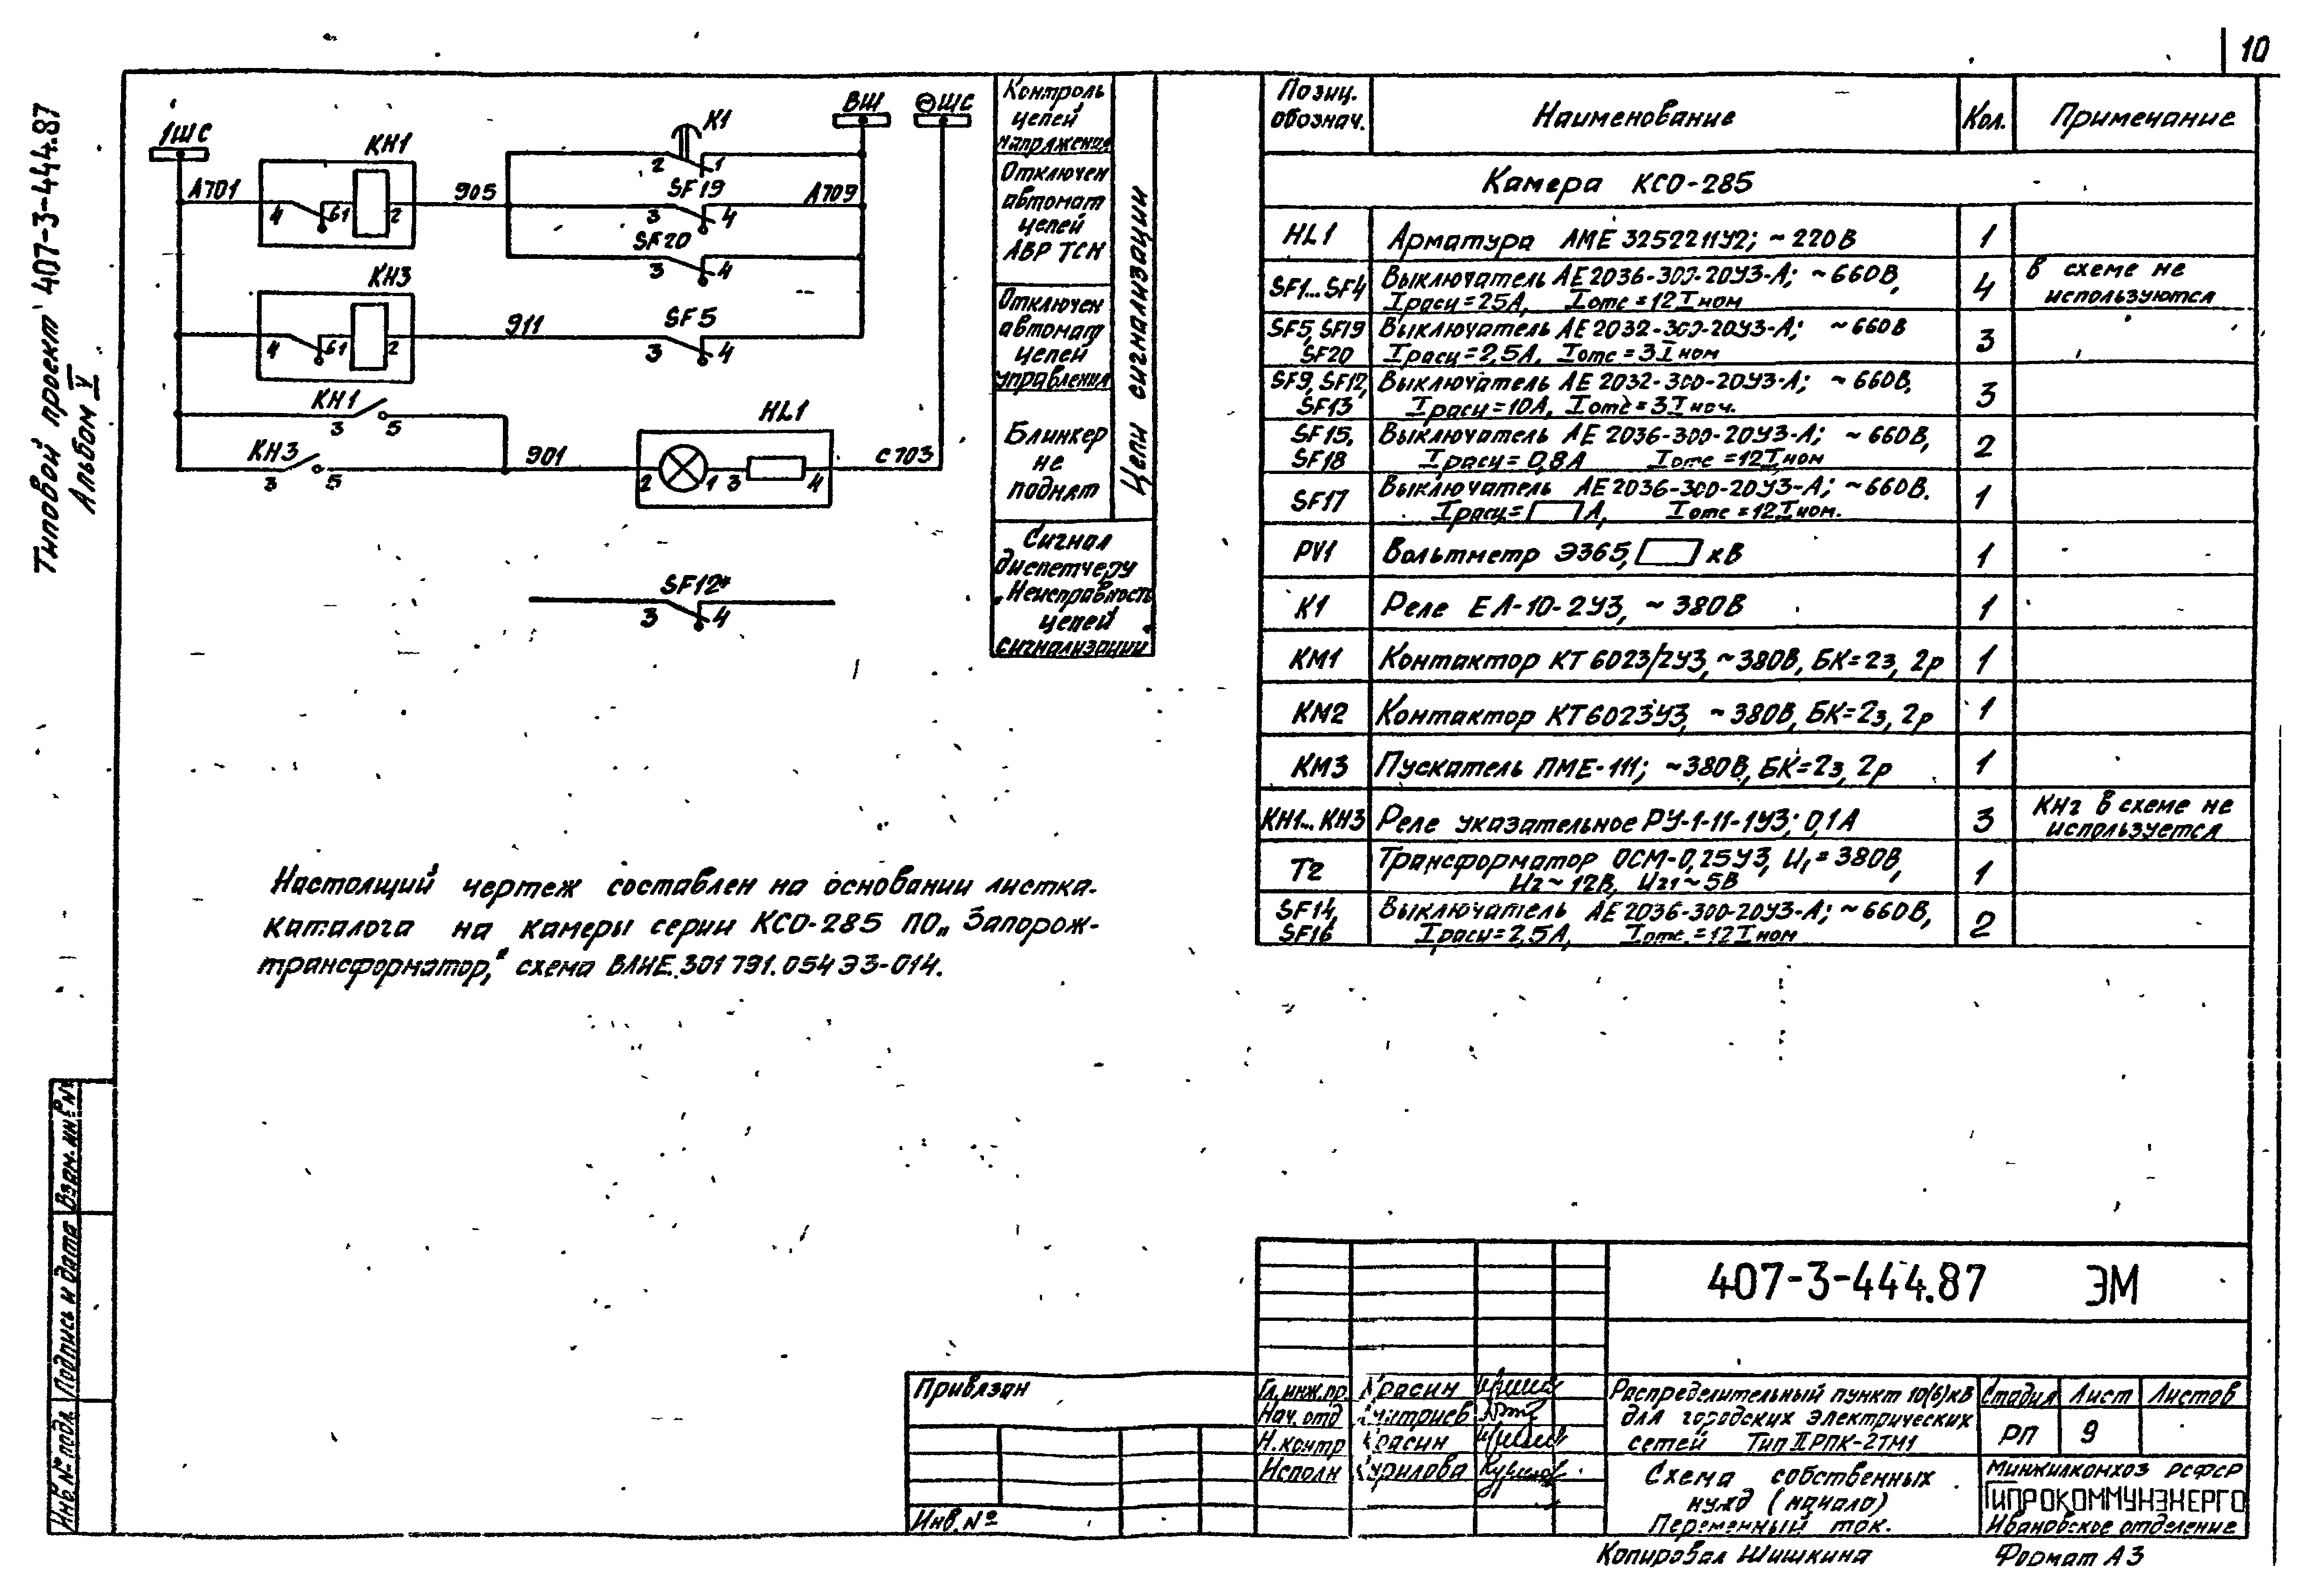 10
Типовой проект 407-3-444.87
Альбом V
1ШС
КН1
А701
4
61
2
905
К1
2
1
SF19
3
4
А709
SF20
3
4
ВШ
ШС
КН3
4
61
2
911
SF5
3
4
КН1
3
5
КН3
3
5
901
HL1
2
1
3
4
С703
SF12*
3
4
Контроль
цепей
напряжения
Отключен
автомат
цепей
АВР ТСН
Отключен
автомат
цепей
управления
Блинкер
не
поднят
Цепи сигнализации
Сигнал
диспетчеру
„Неисправность
цепей
сигнализации
Позиц.
обознач.
Наименование
Кол.
Примечание
Камера КСО-285
HL1 Арматура АМЕ 325221У2; ~220В 1
SF1...SF4 Выключатель АЕ2036-300-20У3-А; ~660В, 4 В схеме не
Iрасц=25А, Iотс=12Iном используются
SF5, SF19 Выключатель АЕ2032-300-20У3-А; ~660В 3
SF20 Iрасц=2,5А, Iотс=3Iном
SF9, SF12, Выключатель АЕ2032-300-20У3-А; ~660В, 3
SF13 Iрасц=10А, Iотс=3Iном.
SF15, Выключатель АЕ2036-300-20У3-А; ~660В, 2
SF18 Iрасц=0,8А Iотс=12Iном
SF17 Выключатель АЕ2036-300-20У3-А; ~660В. 1
Iрасц= А, Iотс=12Iном.
PV1 Вольтметр Э365, кВ 1
К1 Реле ЕЛ-10-2У3, ~380В 1
КМ1 Контактор КТ6023/2У3, ~380В, БК=2з, 2р 1
КМ2 Контактор КТ6023У3, ~380В, БК=2з, 2р 1
КМ3 Пускатель ПМЕ-111; ~380В, БК=2з, 2р 1
КН1...КН3 Реле указательное РУ-1-11-1У3; 0,1А 3 КН2 в схеме не
используется
Т2 Трансформатор ОСМ-0,25У3, U1=380В, 1
U2~12В, U21~5В
SF14, Выключатель АЕ2036-300-20У3-А; ~660В, 2
SF16 Iрасц=2,5А, Iотс=12Iном
Настоящий чертеж составлен на основании листка-
каталога на камеры серии КСО-285 ПО „Запорож-
трансформатор,“ схема ВЛИЕ.301791.054 Э3-014.
Взам. инв. №
Подпись и дата
Инв. № подл.
Привязан
Инв. №
407-3-444.87 ЭМ
Гл. инж. пр. Красин
Нач. отд Дмитриев
Н. контр Красин
Исполн Курилова
Распределительный пункт 10(6)кВ
для городских электрических
сетей Тип II РПК-2ТМ1
Стадия Лист Листов
РП 9
Схема собственных
нужд (начало)
Переменный ток.
Минжилкомхоз РСФСР
ГИПРОКОММУНЭНЕРГО
Ивановское отделение
Копировал Шишкина Формат А3